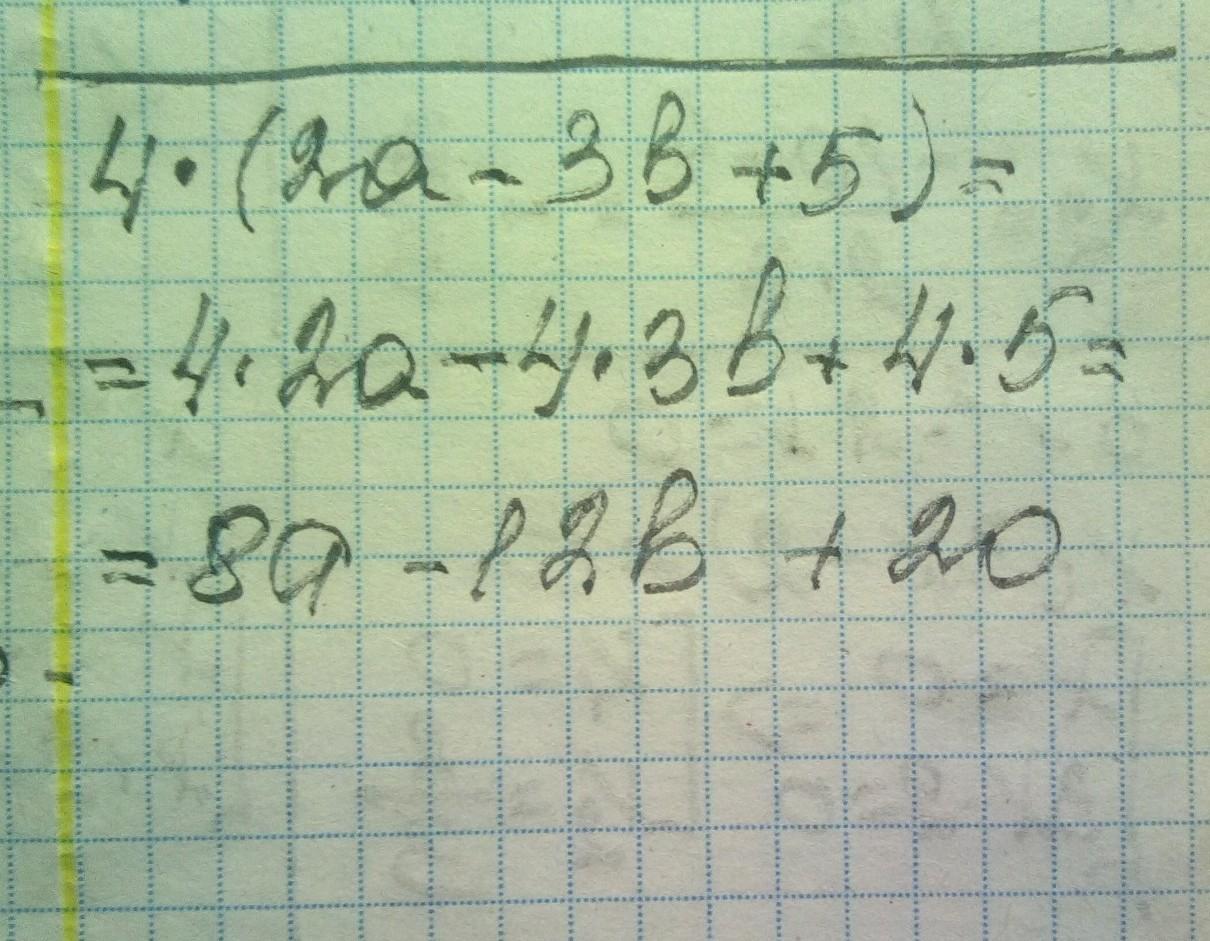 4·(2a-3b+5)=
=4·2a-4·3b+4·5=
=8a-12b+20